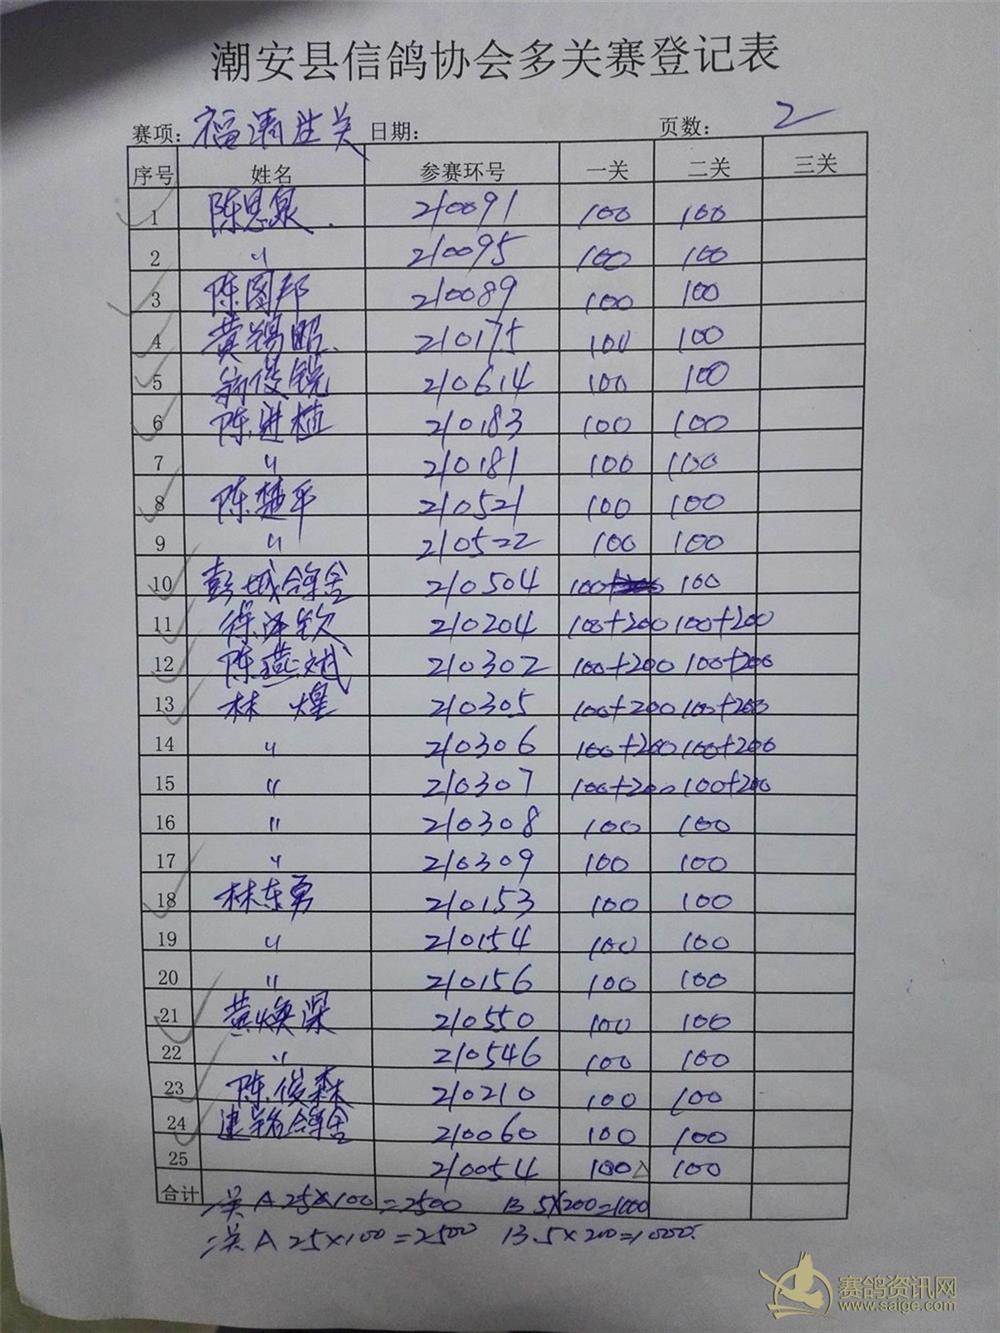 潮安县信鸽协会多关赛登记表
赛项: 福清 关 日期: 页数: 2
序号 姓名 参赛环号 一关 二关 三关
1 陈恩泉 210091 100 100
2 〃 210095 100 100
3 陈图邦 210089 100 100
4 黄锡昭 210175 100 100
5 俊锐 210614 100 100
6 陈进植 210183 100 100
7 〃 210181 100 100
8 陈楚平 210521 100 100
9 〃 210522 100 100
10 彭城合舍 210504 100 100
11 徐泽钦 210204 100+200 100+200
12 陈燕斌 210302 100+200 100+200
13 林煌 210305 100+200 100+200
14 〃 210306 100+200 100+200
15 〃 210307 100+200 100+200
16 〃 210308 100 100
17 〃 210309 100 100
18 林东勇 210153 100 100
19 〃 210154 100 100
20 〃 210156 100 100
21 黄焕深 210550 100 100
22 〃 210546 100 100
23 陈俊森 210210 100 100
24 建 舍 210060 100 100
25 210054 100 100
合计 A 25×100=2500 B 5×200=1000
A 25×100=2500 B.5×200=1000.
赛鸽资讯网
www.saige.com